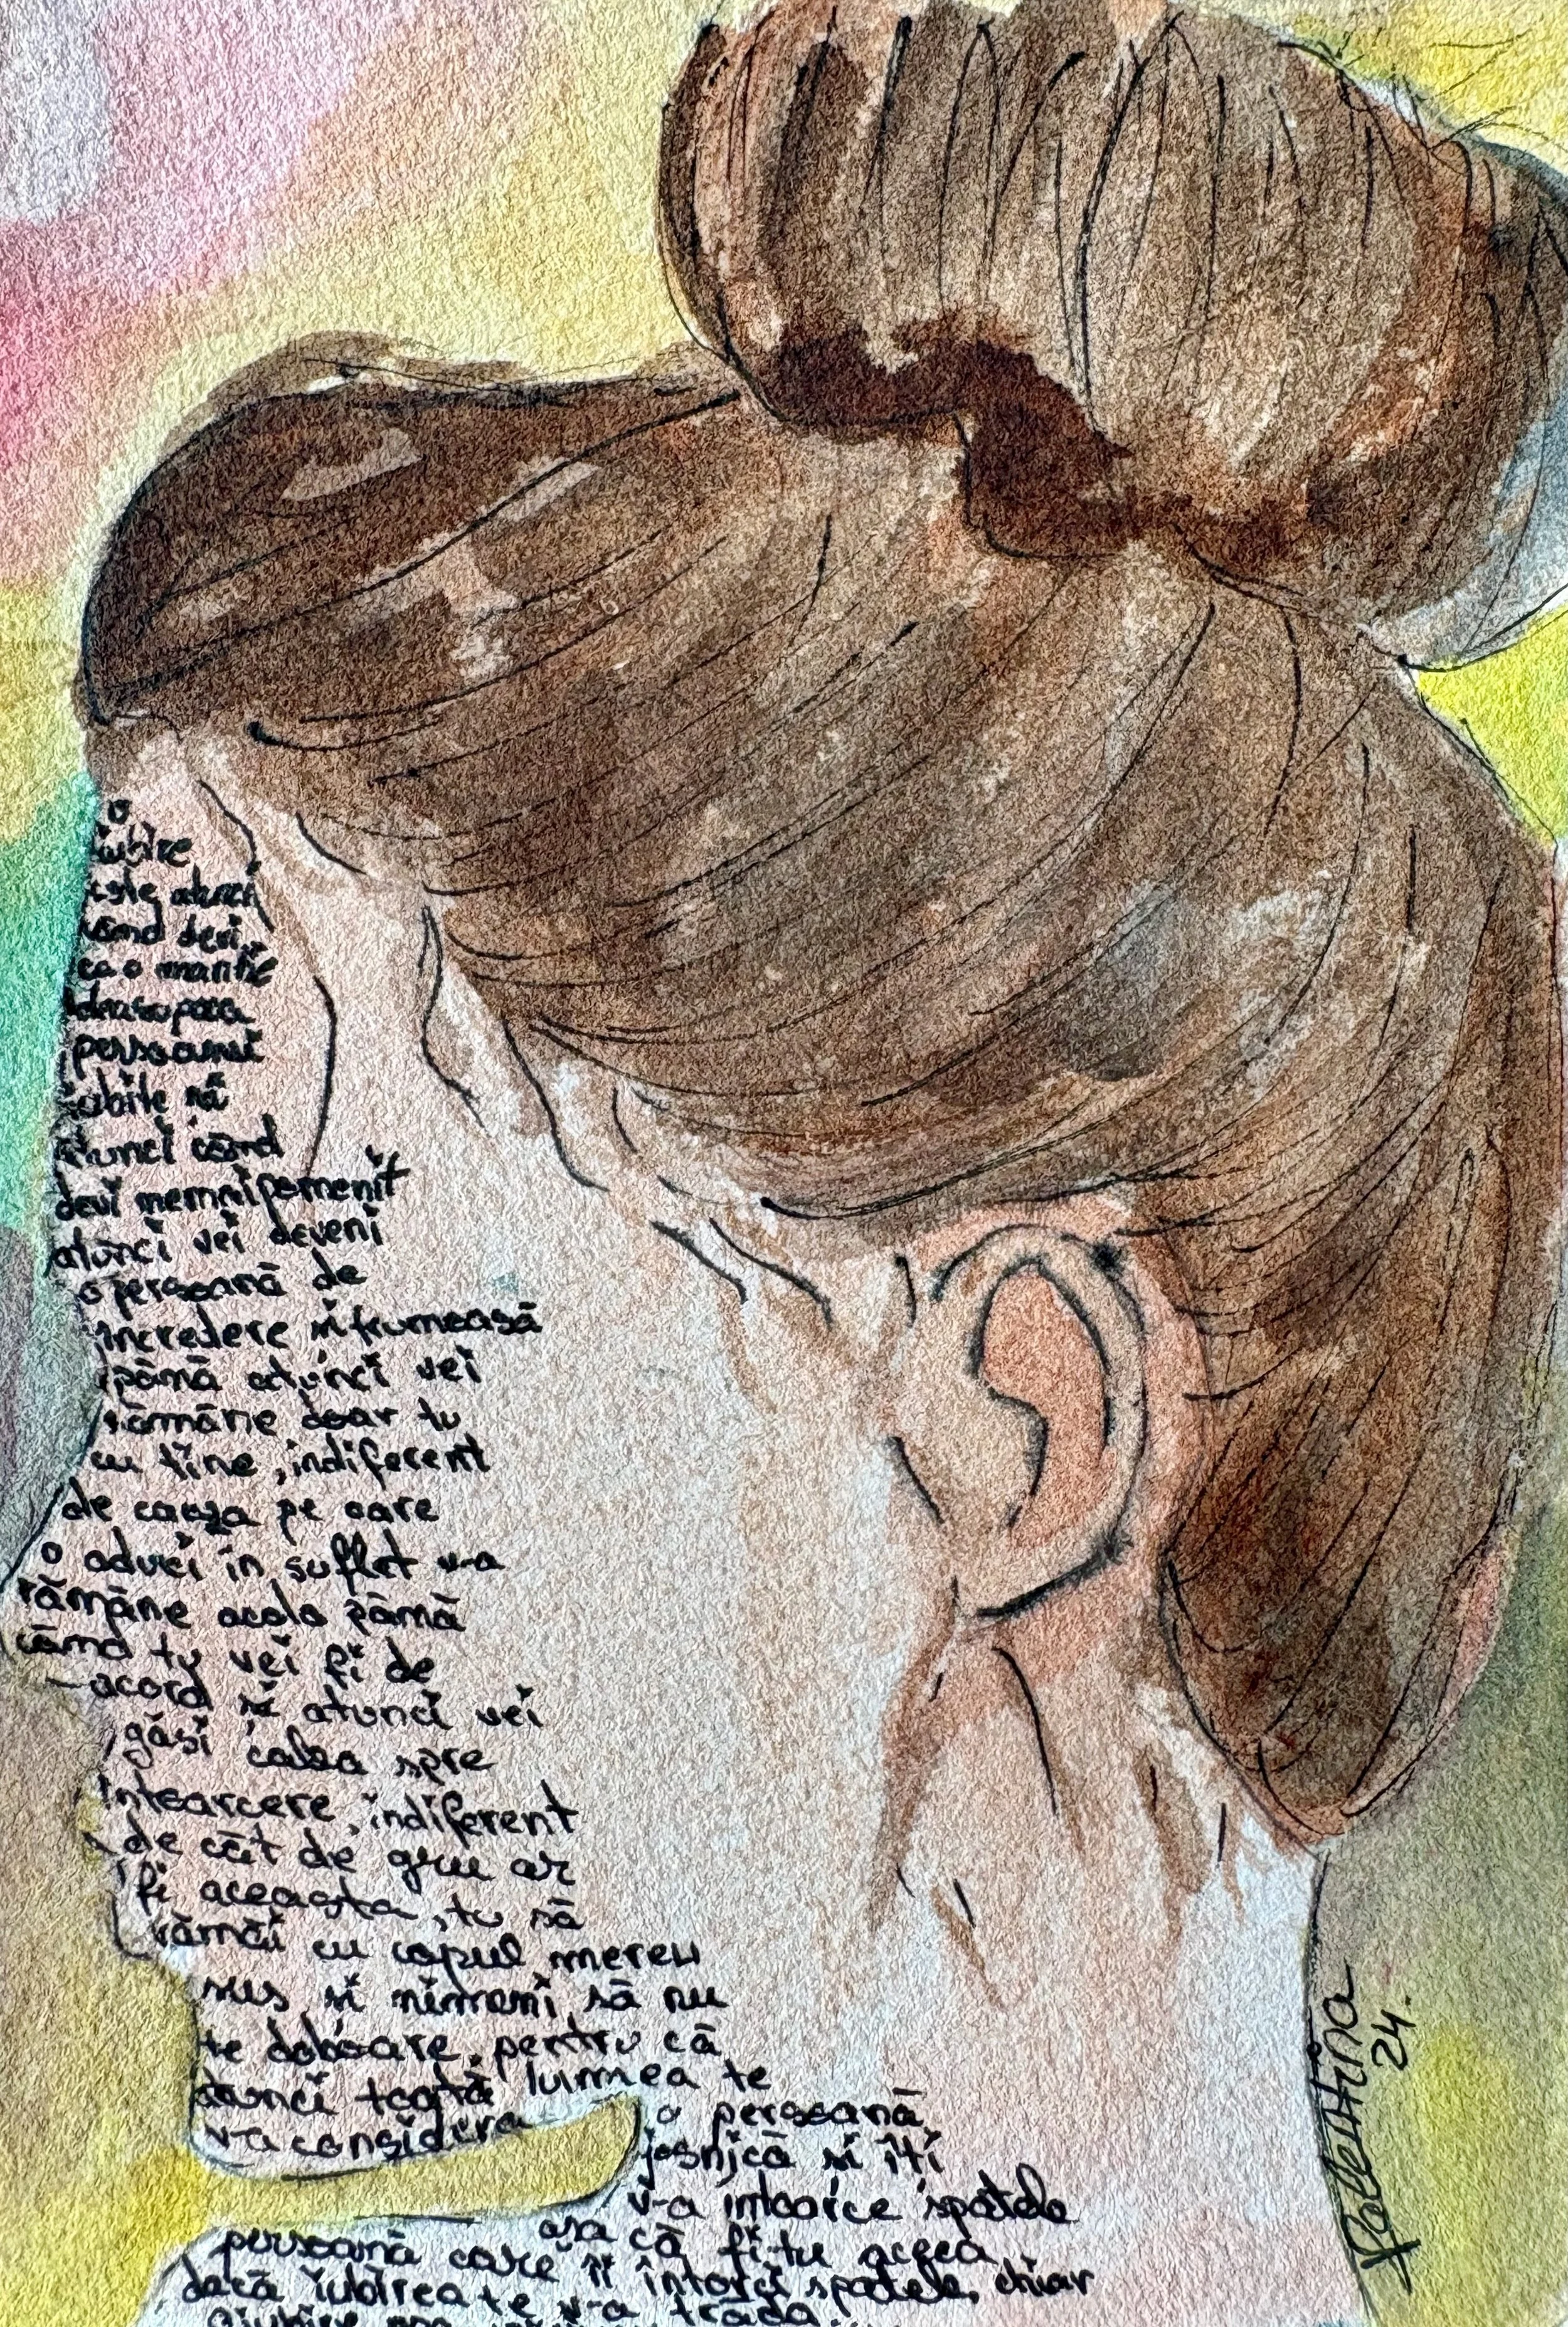 o
iubire
este atunci
când devi
ca o mantie
deasupra
persoanei
iubite să
atunci când
devi nemaipomenit
atunci vei deveni
o persoană de
incredere și frumoasă
pănă atunci vei
rămâne doar tu
cu tine, indiferent
de cauza pe care
o aduci in suflet v-a
rămăne acolo pănă
cănd tu vei fi de
acord și atunci vei
găsi calea spre
intoarcere, indiferent
de căt de greu ar
fi aceasta, tu să
rămăi cu capul mereu
sus și nimeni să nu
te doboare, pentru că
atunci toată lumea te
v-a considera o persoană
josnică și îți
v-a intoarce spatele
așa că fi tu aceea
persoană care îi întorci spatele, chiar
dacă iubirea te v-a trăda.
Valentina
24.